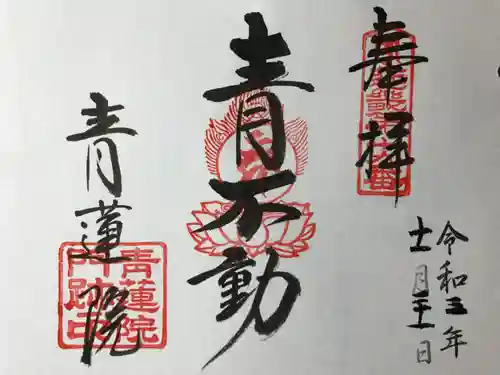 奉拝
令和三年
十一月二十一日
青不動
青蓮院
青蓮院
門跡印